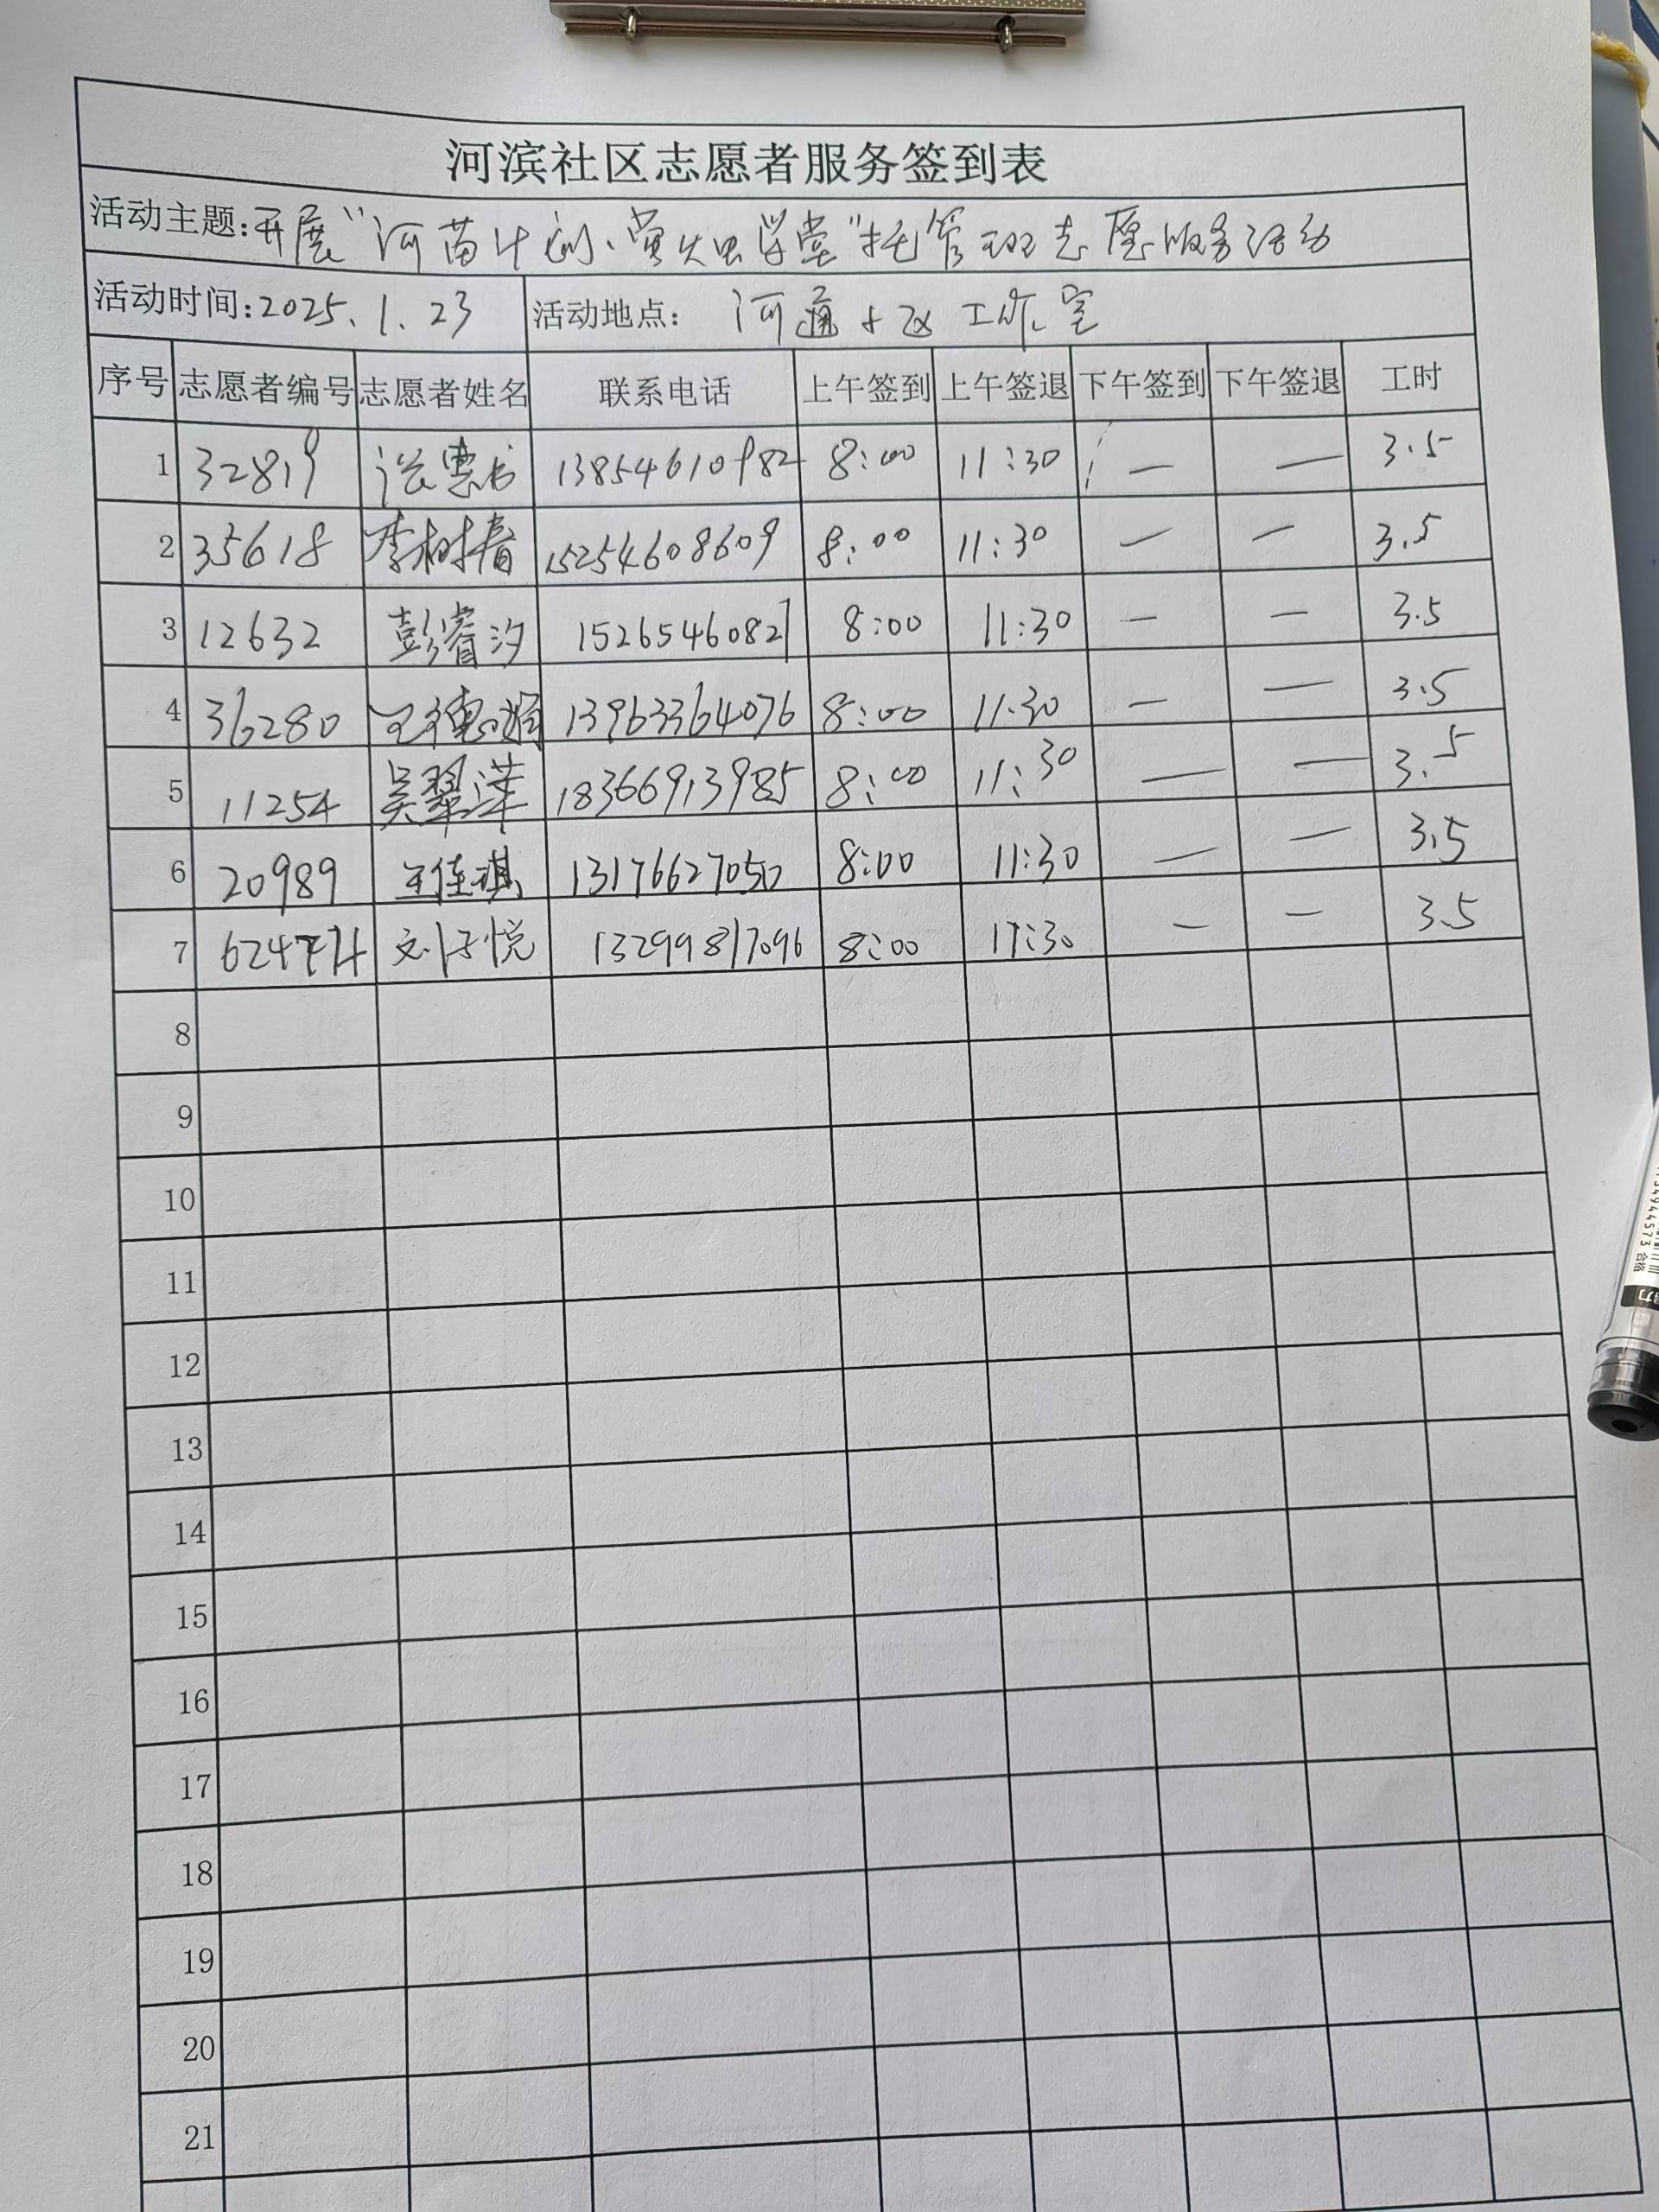 河滨社区志愿者服务签到表
活动主题:开展"河苗计划·萤火虫学堂"托管班志愿服务活动
活动时间:2025.1.23 活动地点: 河滨社区工作室
序号 志愿者编号 志愿者姓名 联系电话 上午签到 上午签退 下午签到 下午签退 工时
1 32819 13854610982 8:00 11:30 — — 3.5
2 35618 李树春 15254608609 8:00 11:30 — — 3.5
3 12632 彭睿汐 1526546082 8:00 11:30 — — 3.5
4 36280 王德娟 13963364076 8:00 11:30 — — 3.5
5 11254 吴翠萍 18366913985 8:00 11:30 — — 3.5
6 20989 王佳琪 13176627050 8:00 11:30 — — 3.5
7 刘子悦 13299817096 8:00 11:30 — — 3.5
8
9
10
11
12
13
14
15
16
17
18
19
20
21
合格